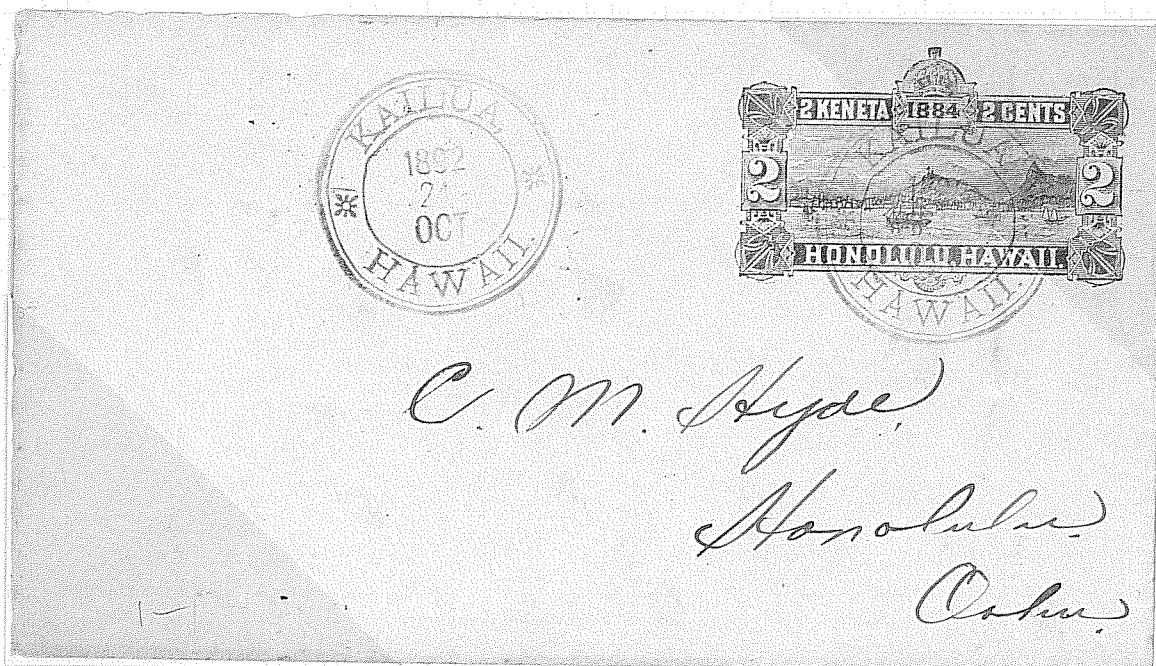 KAILUA,
1892
OCT
HAWAII.
2 KENETA 1884 2 CENTS
2 2
HONOLULU, HAWAII.
KAILUA
HAWAII.
C. M. Hyde,
Honolulu.
Oahu.